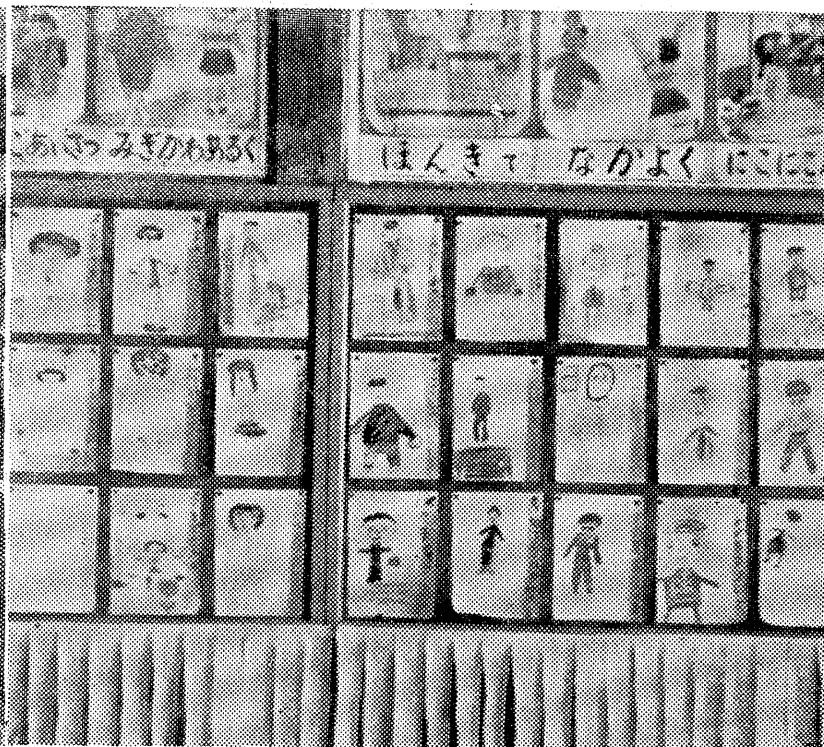 ごあいさつ みぎがわあるく
ほんきで なかよく にこにこ